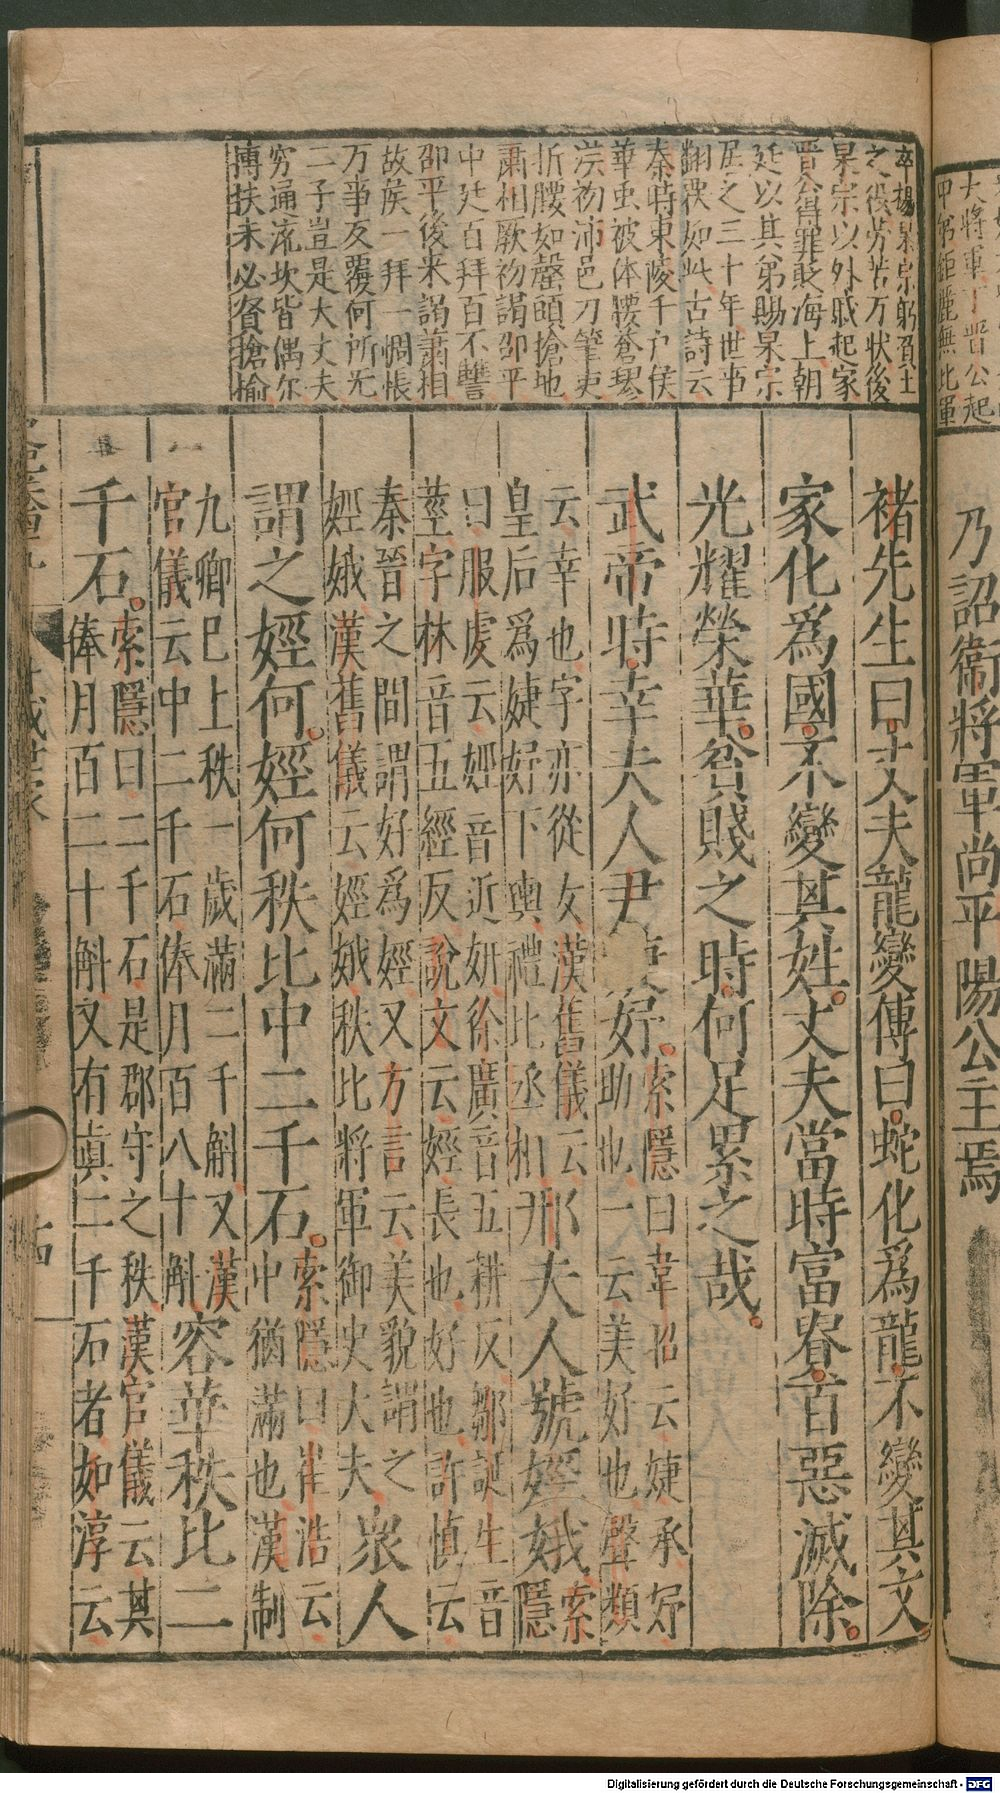 大將軍丁晋公起
甲第鉅麗無比軍
乃詔衞將軍尚平陽公主焉
卒楊杲宗躬負土
之役劳苦万状後
杲宗以外戚起家
晋公得罪貶海上朝
廷以其弟賜杲宗
居之三十年世事
翻覆如此古詩云
秦時東陵千户侯
華虫被体腰蒼璆
漢初沛邑刀筆吏
折腰如磬頭搶地
蕭相厥初謁邵平
中廷百拜百不讐
邵平後来謁蕭相
故侯一拜一惆悵
万事反覆何所无
二子豈是大丈夫
穷通流坎皆偶尔
摶扶未必賢搶榆
褚先生曰丈夫龍變傳曰蛇化爲龍不變其文
家化爲國不變其姓丈夫當時富貴百惡滅除
光耀榮華貧賤之時何足累之哉
武帝時幸夫人尹婕妤索隱曰韋昭云婕承妤
助也一云美好也聲類
云幸也字亦從女漢舊儀云
皇后爲婕妤下輿禮比丞相邢夫人號娙娥索隱
曰服虔云娙音近妍徐廣音五耕反鄒誕生音
莖字林音五經反說文云娙長也好也許慎云
秦晉之間謂好爲娙又方言云美貌謂之
娙娥漢舊儀云娙娥秩比將軍御史大夫衆人
謂之娙何娙何秩比中二千石索隱曰崔浩云
中猶滿也漢制
九卿已上秩一歲滿二千斛又漢
官儀云中二千石俸月百八十斛容華秩比二
千石索隱曰二千石是郡守之秩漢官儀云其
俸月百二十斛又有眞二千石者如淳云
戚世家
Digitalisierung gefördert durch die Deutsche Forschungsgemeinschaft - DFG